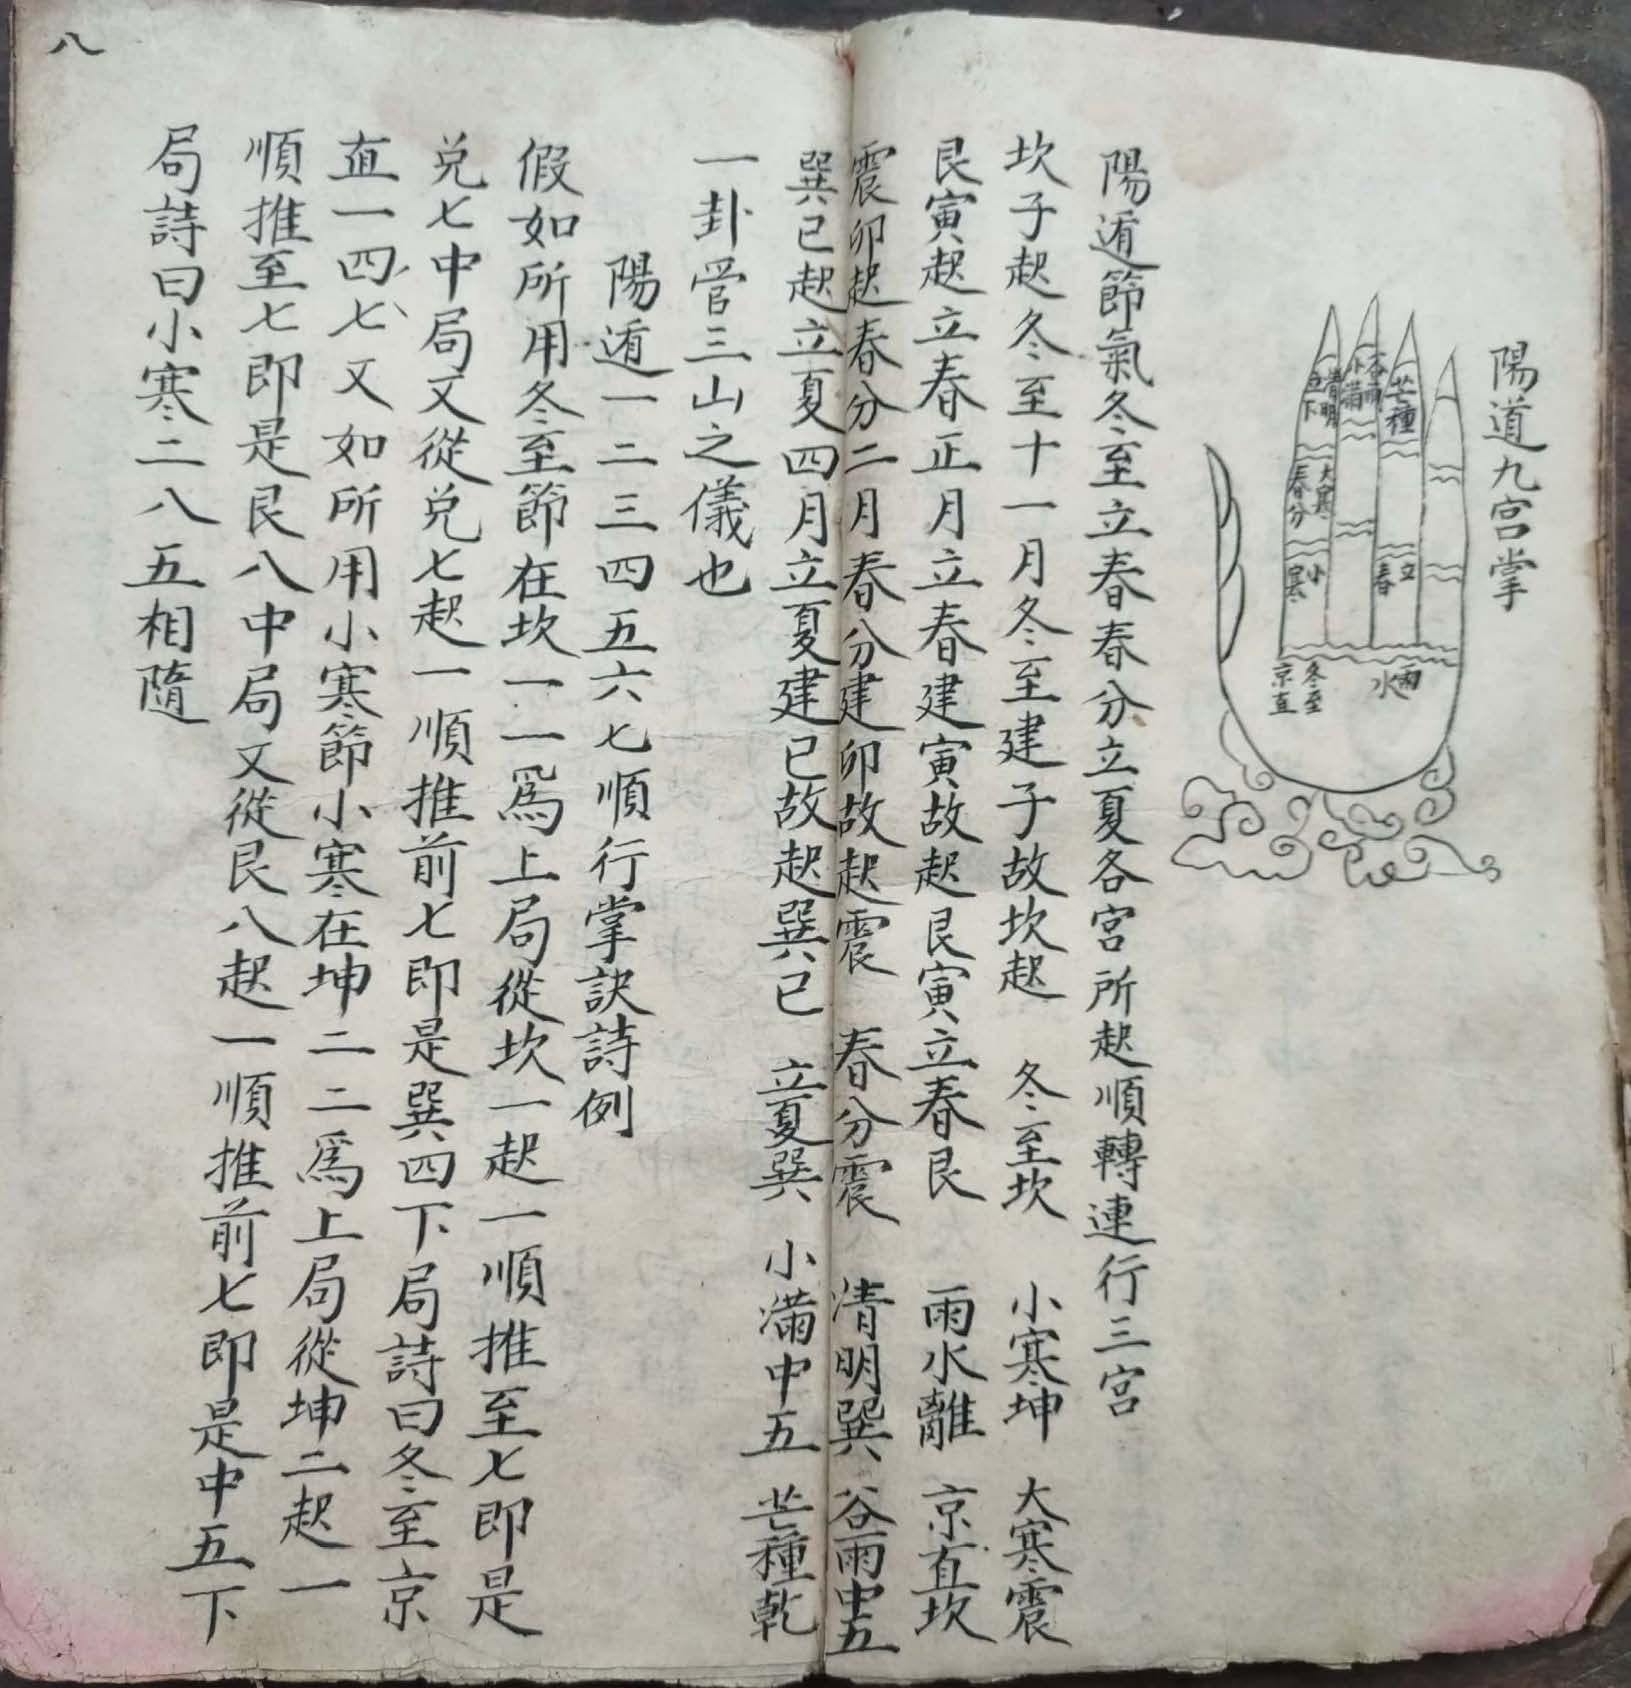 陽道九宮掌
芒種
谷雨
小滿
清明
立下
大寒
春分
小寒
立春
冬至
京直
雨水
陽遁節氣冬至立春春分立夏各宮所起順轉連行三宮
坎子起冬至十一月冬至建子故坎起 冬至坎 小寒坤 大寒震
艮寅起立春正月立春建寅故起艮寅立春艮 雨水離 京直坎
震卯起春分二月春分建卯故起震 春分震 清明巽 谷雨中五
巽巳起立夏四月立夏建巳故起巽巳 立夏巽 小滿中五 芒種乾
一卦管三山之儀也
陽遁一二三四五六七順行掌訣詩例
假如所用冬至節在坎一一爲上局從坎一起一順推至七即是
兑七中局又從兑七起一順推前七即是巽四下局詩曰冬至京
直一四七又如所用小寒節小寒在坤二二爲上局從坤二起一
順推至七即是艮八中局又從艮八起一順推前七即是中五下
局詩曰小寒二八五相隨
八